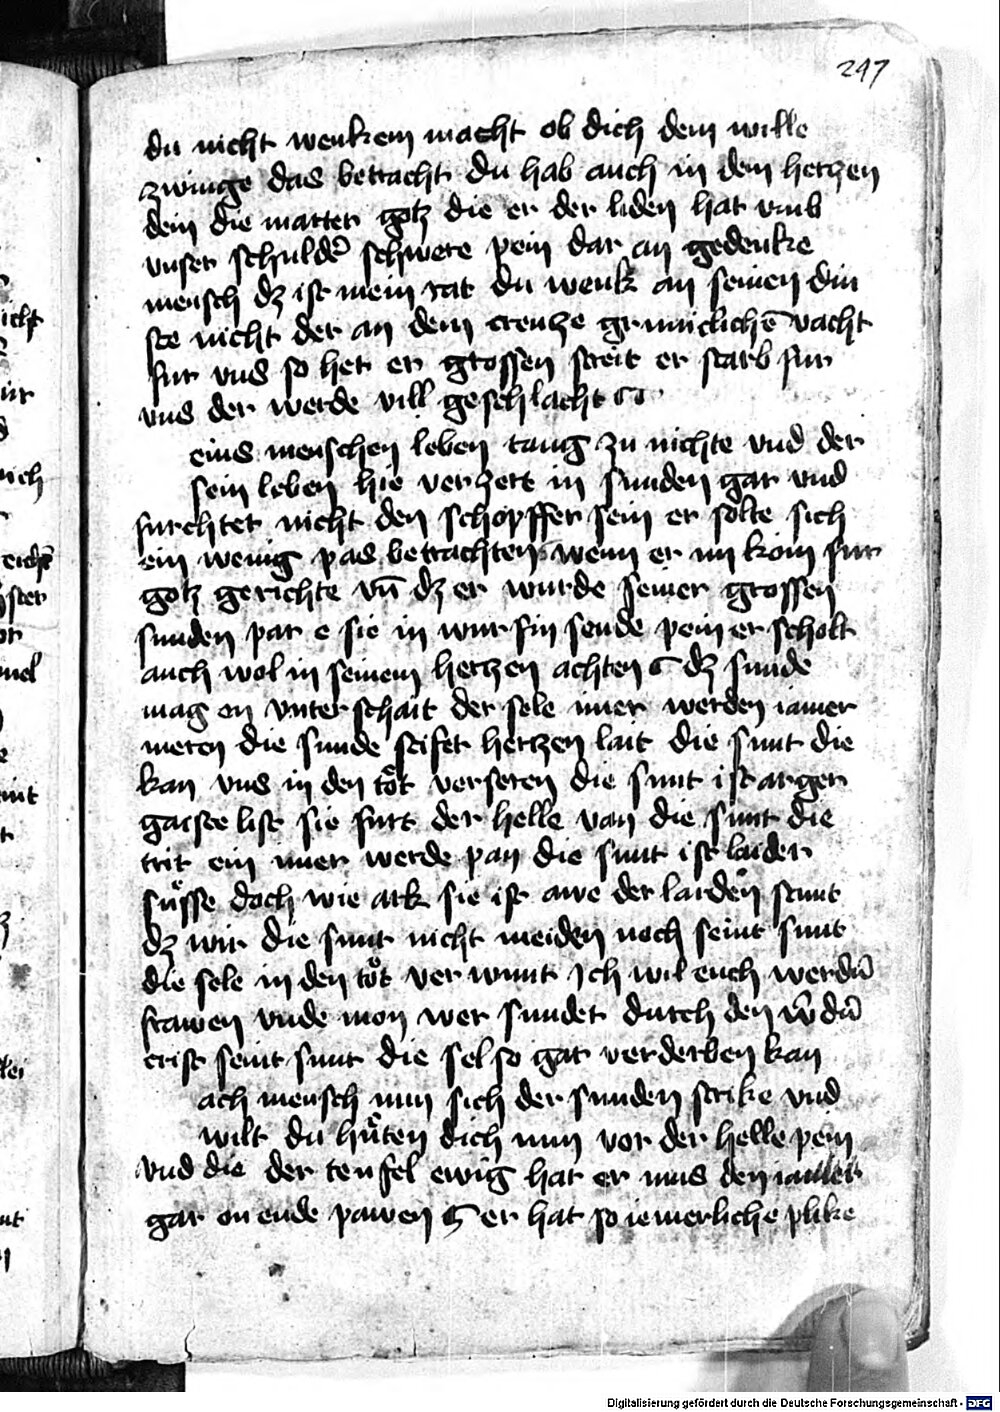 247
du nicht wenken macht ob dich dem wille
zwinge das betracht du hab auch in dem hertzen
dein die marter gotz die er der liden hat vmb
vnser schulde᷑ schwere pein dar an gedenke
mensch dz ist mein rat du wenk an seinen din
ste nicht der an dem creutze grimiclichē vacht
fur vns so het er grossen streit er starb fur
vns der werde vill geschlacht
eins menschen leben taug zu nichte vnd der
sein leben hie verzert in sunden gar vnd
furchtet nicht den schopffer sein er solte sich
ein wenig pas betrachten wenn er im kom fur
gotz gerichte vn̄ dz er wurde seiner grossen
sunden par e sie in wurf in sende pein er scholt
auch wol in seinem hertzen achten dz sunde
mag on vnterschait der sele imer werden iamer
meren die sunde stifet hertzen lait die sunt die
kan vns in den tot verseren die sunt ist arger
gaiste list sie furt der helle van die sunt die
trit ein imer werde pan die sunt ist laider
süsse doch wie ark sie ist awe der laiden stunt
dz wir die sunt nicht meiden noch seint sunt
die sele in den tot verwunt Ich wil euch werdn̄
frawen vnde mon wer sundet durch den
crist seint sunt die sel so gar verderben kan
ach mensch nun sich der sunden strike vnd
wilt du hüten dich nun vor der helle pein
vnd die der teufel ewig hat er mus den iamer
gar on ende pawen er hat so iemerliche plike
Digitalisierung gefördert durch die Deutsche Forschungsgemeinschaft - DFG